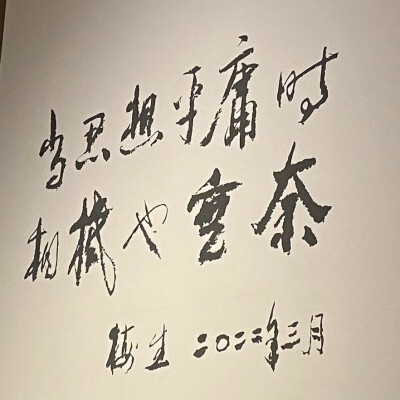 当思想平庸时
相機也無奈
梅生 二〇二二年三月